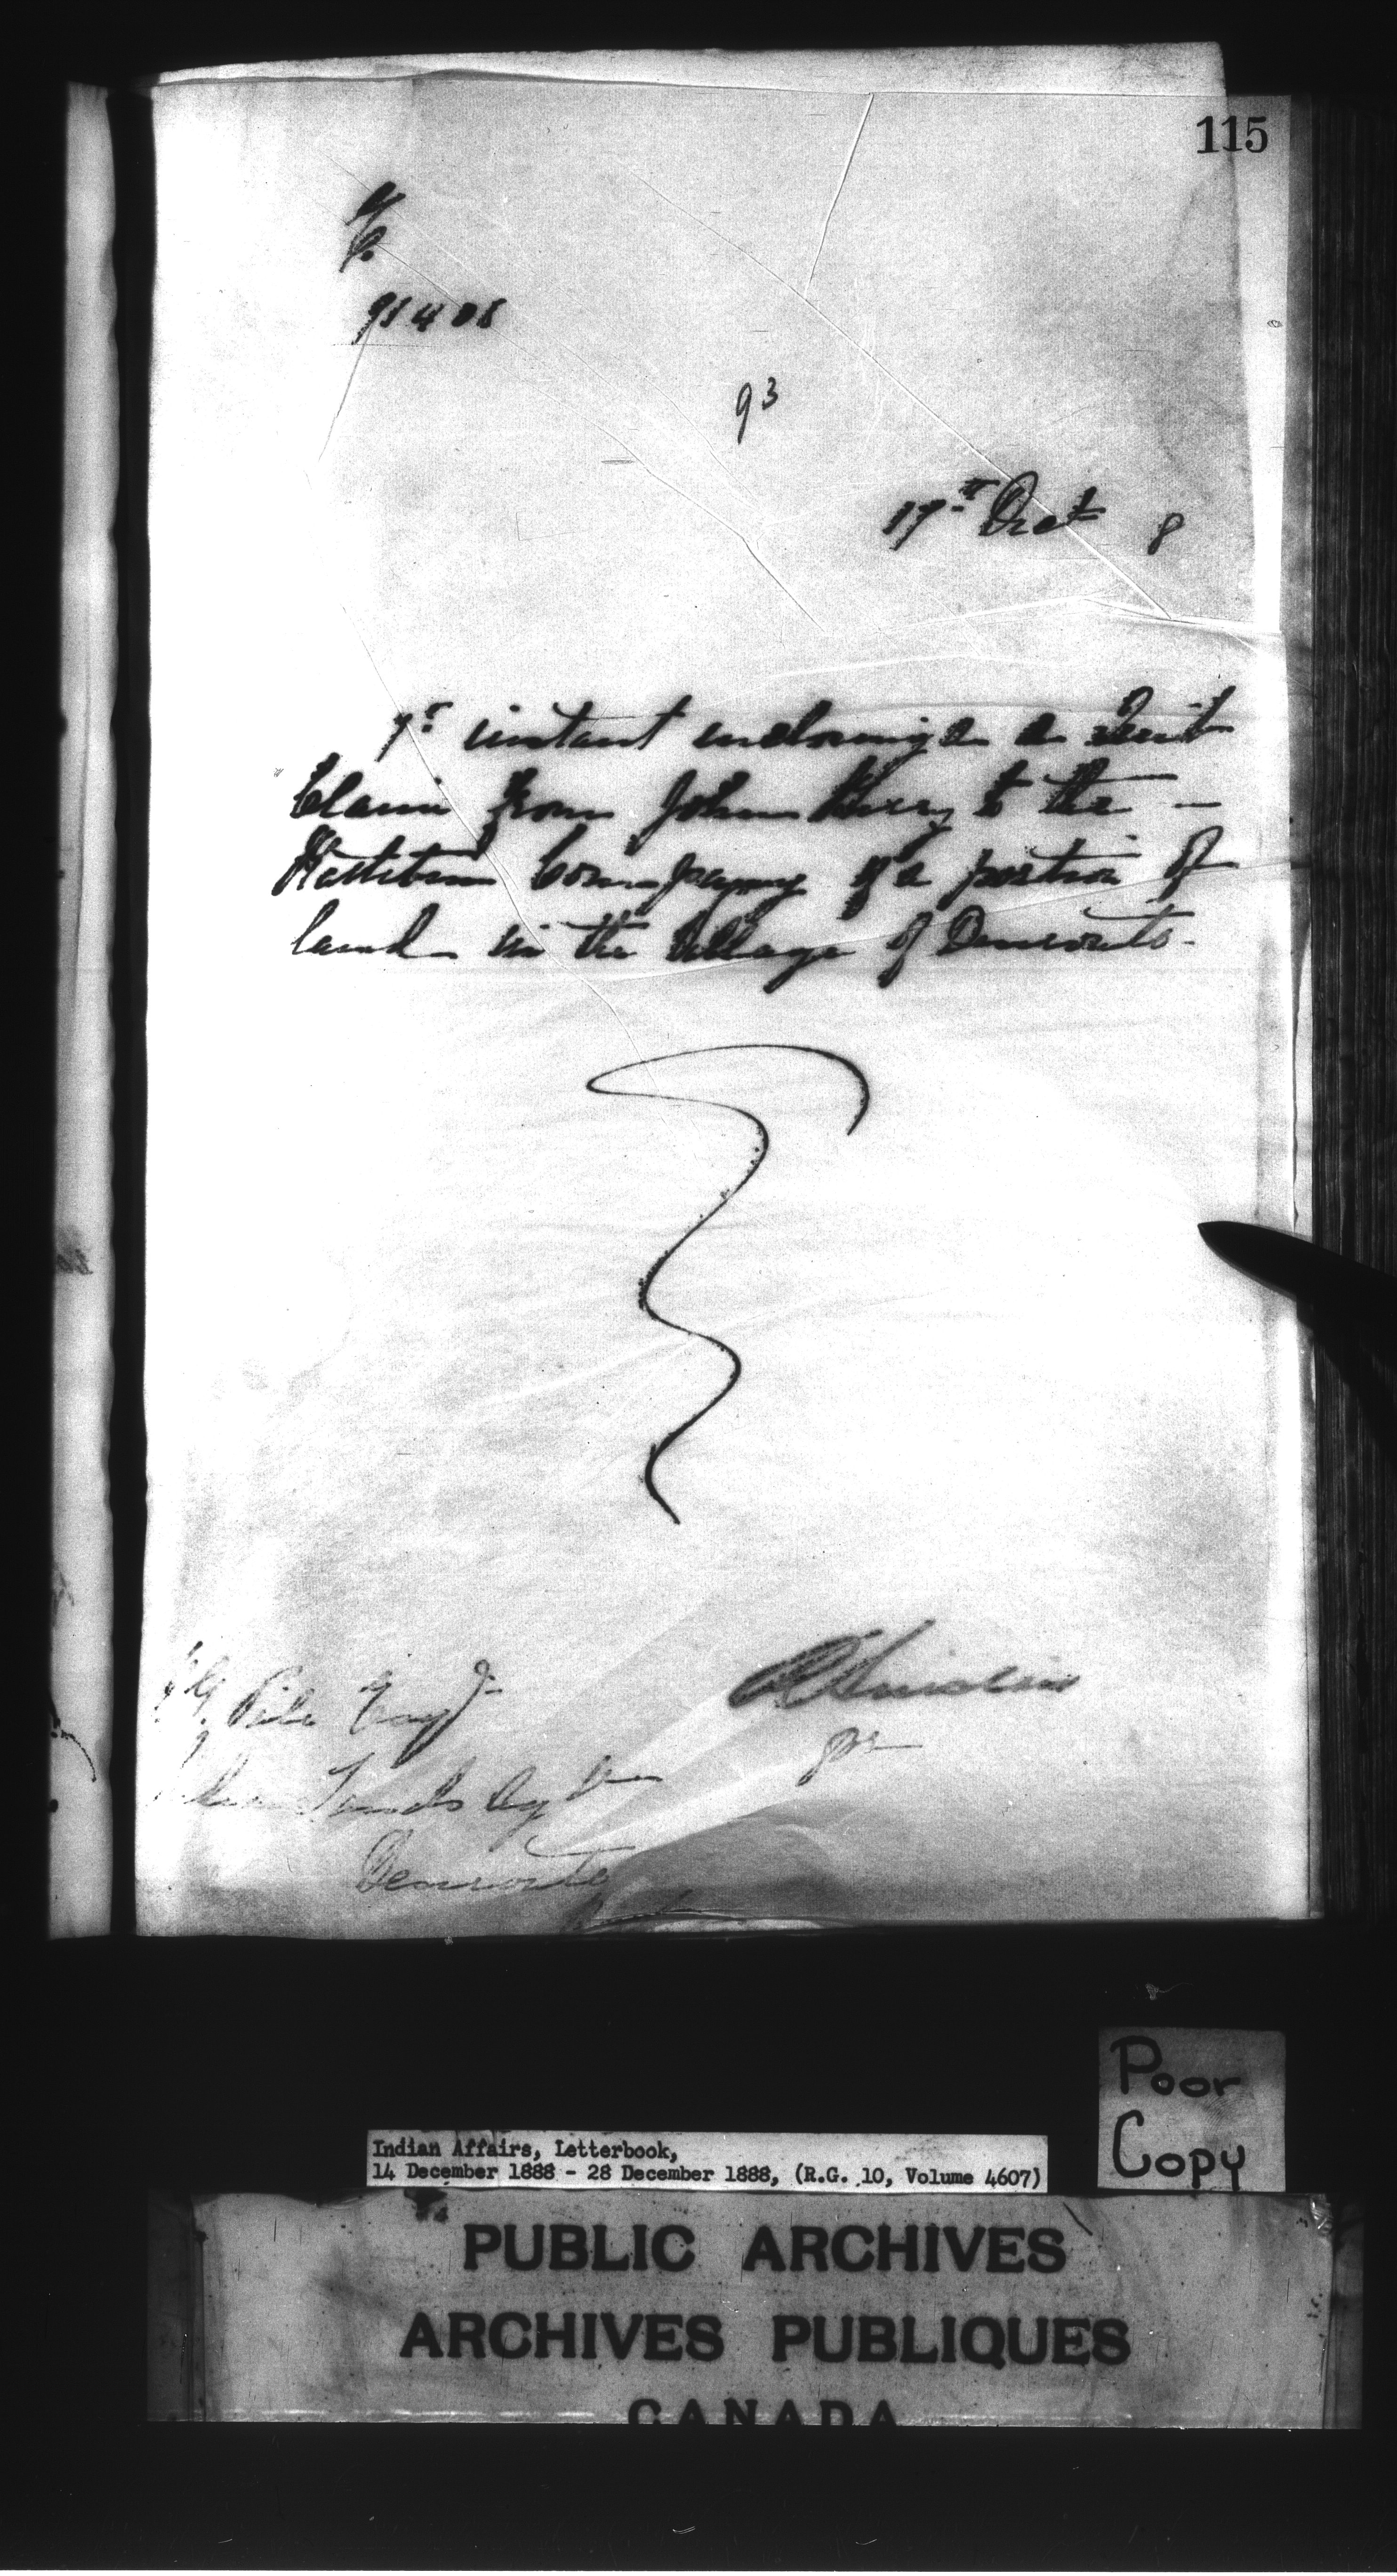 115
91408
93
17th Dect 8
7th instant enclosing a Quit
Claim from John to the —
Rathbun Company of a portion of
land in the Village of Deseronto.
Esqr
Lands Agt
Deseronto
Poor
Copy
Indian Affairs, Letterbook,
14 December 1888 - 28 December 1888, (R.G. 10, Volume 4607)
PUBLIC ARCHIVES
ARCHIVES PUBLIQUES
CANADA